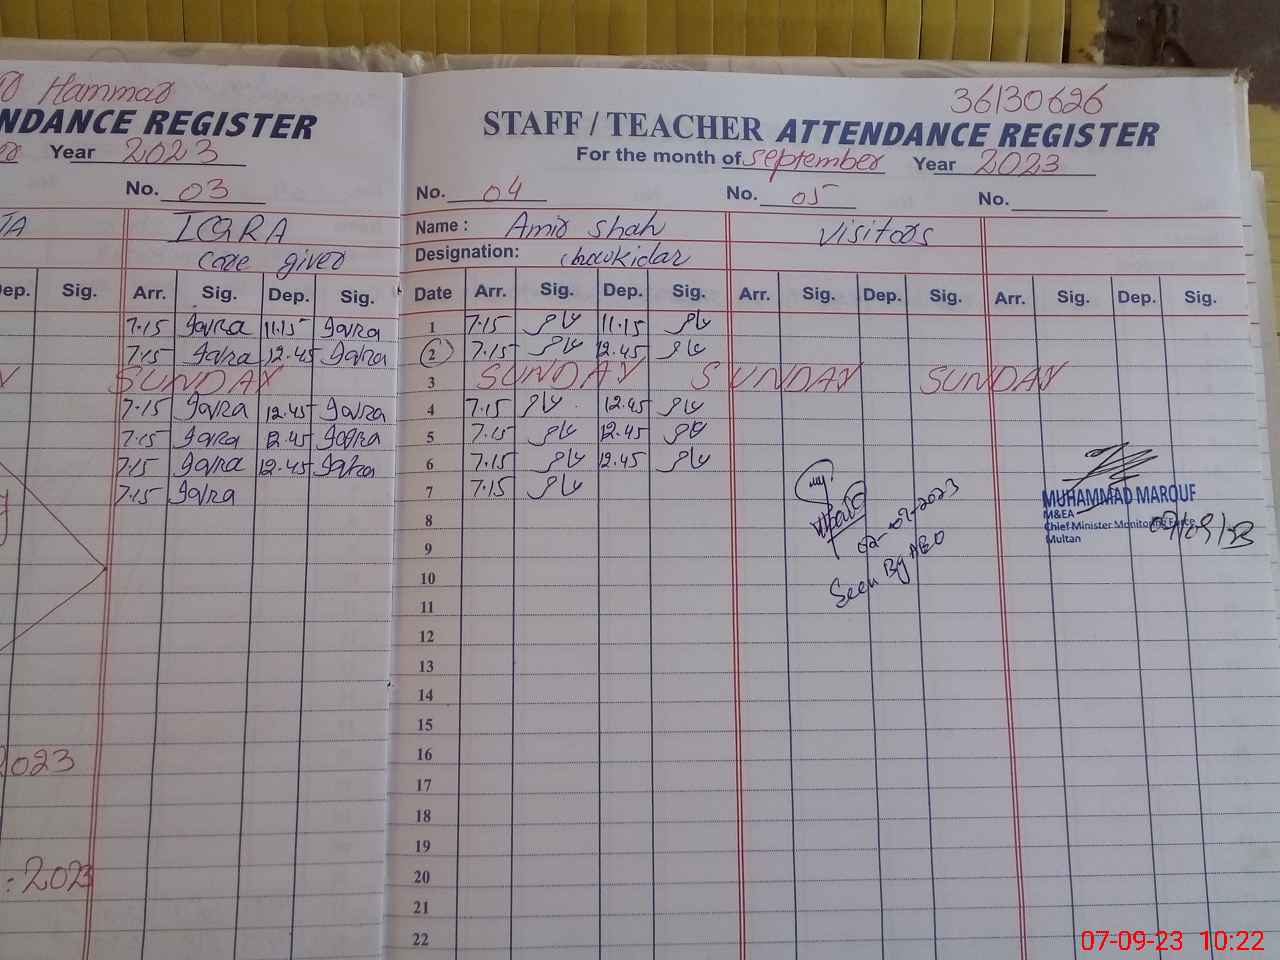 Hammad
NDANCE REGISTER
Year 2023
No. 03
TA IQRA
care giver
Dep. Sig. Arr. Sig. Dep. Sig.
7.15 Iqra 11.15 Iqra
7.15 Iqra 12.45 Iqra
SUNDAY
7.15 Iqra 12.45 Iqra
7.15 Iqra 12.45 Iqra
7.15 Iqra 12.45 Iqra
7.15 Iqra
2023
2023
36130626
STAFF / TEACHER ATTENDANCE REGISTER
For the month of September Year 2023
No. 04 No. 05 No.
Name : Amir Shah Visitors
Designation: chowkidar
Date Arr. Sig. Dep. Sig. Arr. Sig. Dep. Sig. Arr. Sig. Dep. Sig.
1 7.15 11.15
2 7.15 12.45
3 SUNDAY SUNDAY SUNDAY
4 7.15 12.45
5 7.15 12.45
6 7.15 12.45
7 7.15
8
9
10
11
12
13
14
15
16
17
18
19
20
21
22
Seen By AEO
MUHAMMAD MAROUF
M&EA
Chief Minister Monitoring Force
Multan
07/09/23
07-09-23 10:22